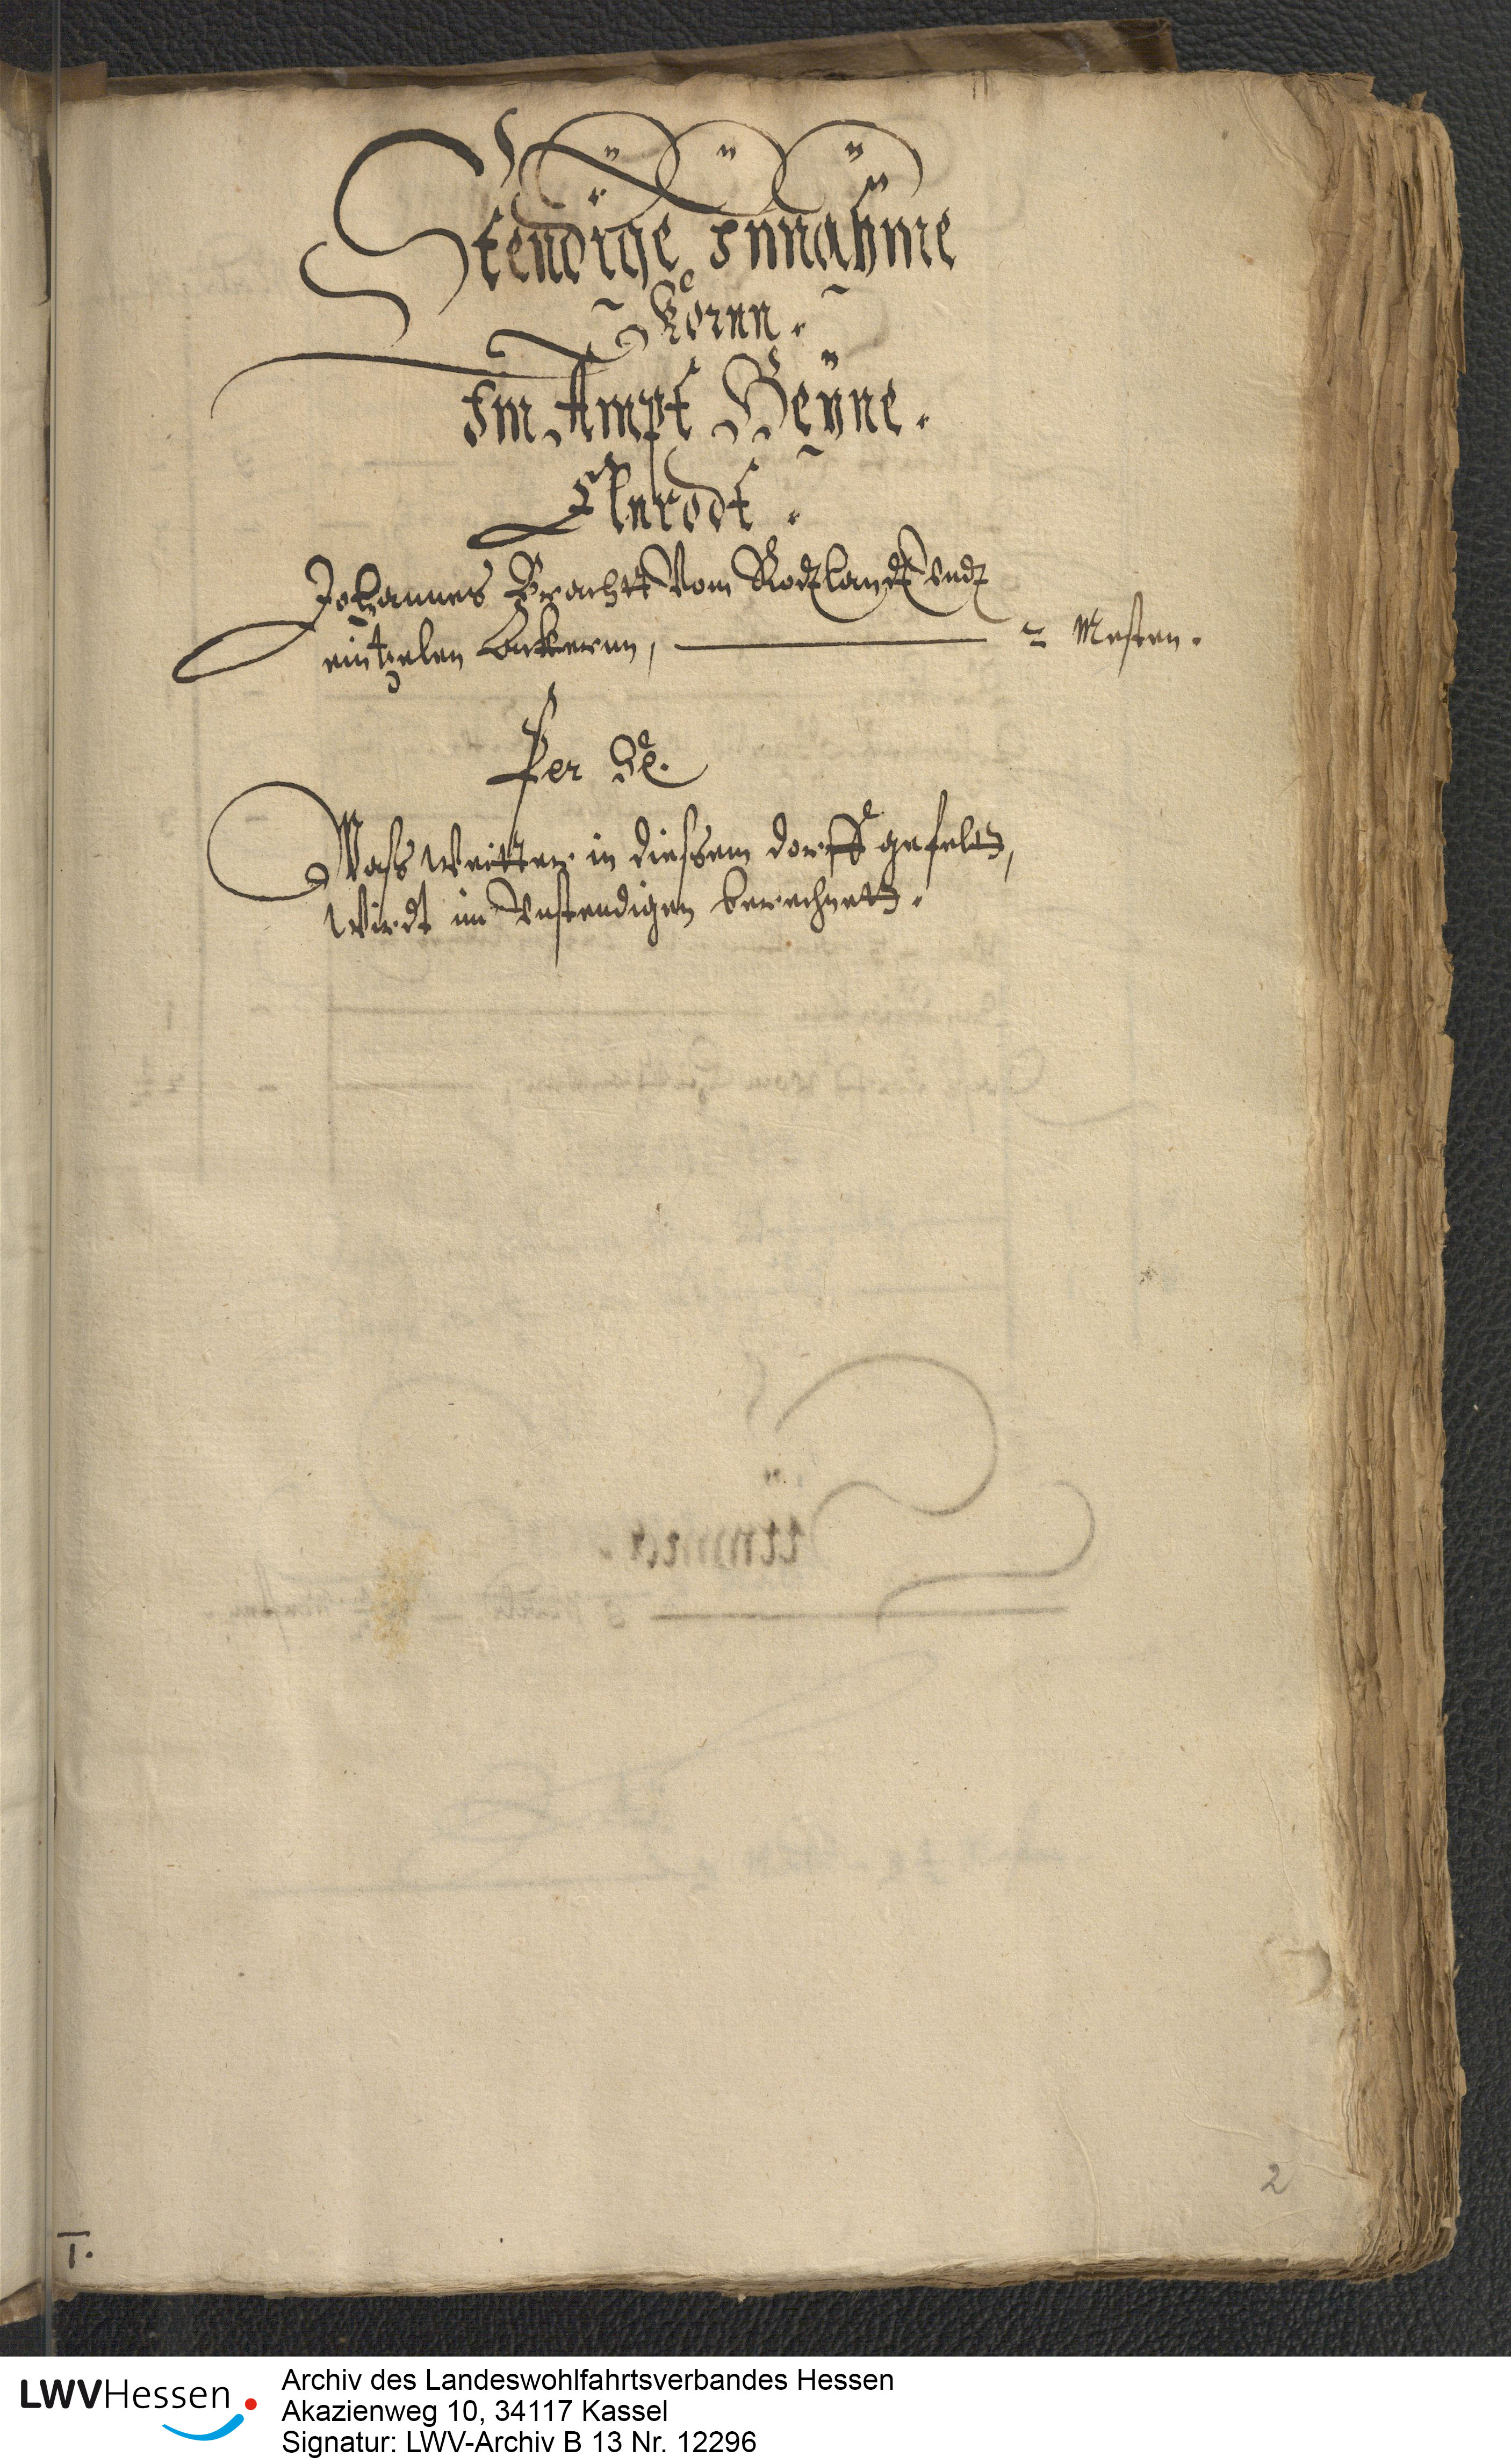 Stendige Innahme
Korn.
Im Ampt Geÿne.
Elnrodt.
Johannes Bracht Vom Rodtlandt vndt
eintzelen Eckernn, 2 Mesten.
Per Se.
Wass weitter in diessem dorff gefelt,
Wirdt im Vnstendigen berechnett.
2
1.
LWVHessen
Archiv des Landeswohlfahrtsverbandes Hessen
Akazienweg 10, 34117 Kassel
Signatur: LWV-Archiv B 13 Nr. 12296